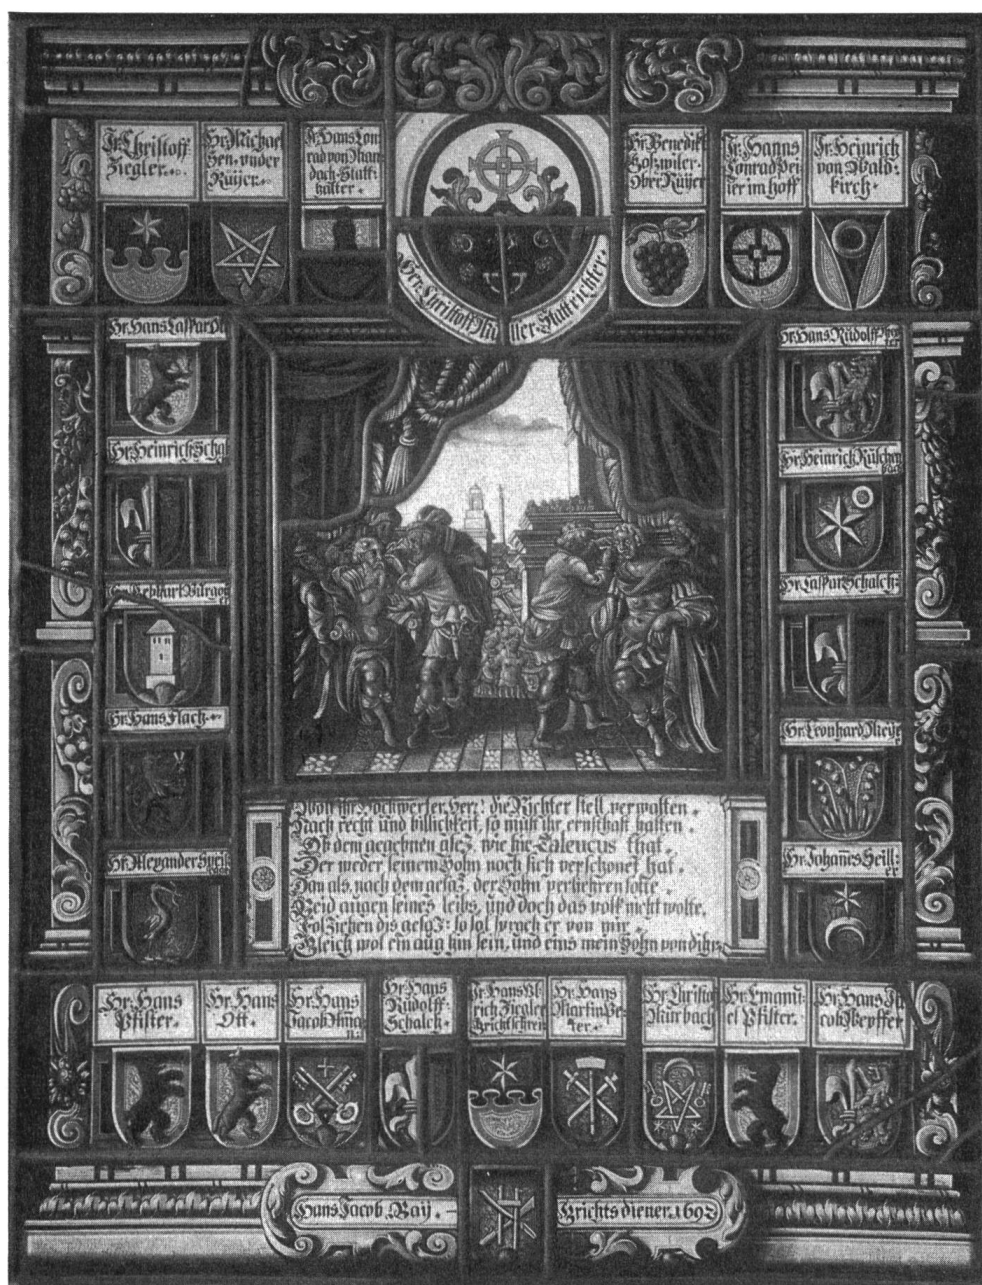 Jr. Christoff
Ziegler.
Hr. Michael
Sen. under
Rüÿer.
Jr. Hans Con
rad von Man
dach. Statt
halter.
Hr. Christoff Müller. Stattrichter.
Hr. Benedikt
Goßwiler.
Ober Rüÿer
Jr. Hanns
Conrad Pei
er im hoff
Jr. Heinrich
von Wald:
kirch.
Hr. Hans Caspar
Hr. Heinrich
Hr. Hans Flach.
Hr. Alexander
Hr. Hans Rüdolff
Hr. Heinrich
Hr. Caspar Schalch:
Hr. Leonhard Meÿ
Hr. Johanes
Wan ihr Hochwerter Herz! die Richter stell verwalten.
Nach recht und billichkeit, so müst ihr, ernsthaft halten.
Ob dem gegebnen gsez, wie hie Zaleucus that.
Der weder seinem Sohn noch sich verschonet hat.
Dan als, nach dem gesaz, der Sohn verliehren solte.
Beid augen seines leibs, und doch das volk nicht wolte,
Volziehen dis gesaz: so sol sprach er von mir.
Gleich wol ein aug hin sein, und eins mein Sohn von dihr.
Hr. Hans
Pfister.
Hr. Hans
Ott.
Hr. Hans
Jacob
Hr. Hans
Rüdolff
Schalch.
Jr. Hans Ul
rich Ziegler
Grichtschrei
Hr. Hans
Martin Pe
ter.
Hr. Christof
Mürbach
Hr. Emanu
el Pfister.
Hr. Hans Ja
cob Wepffer
Hans Jacob Baÿ.
Grichts diener.